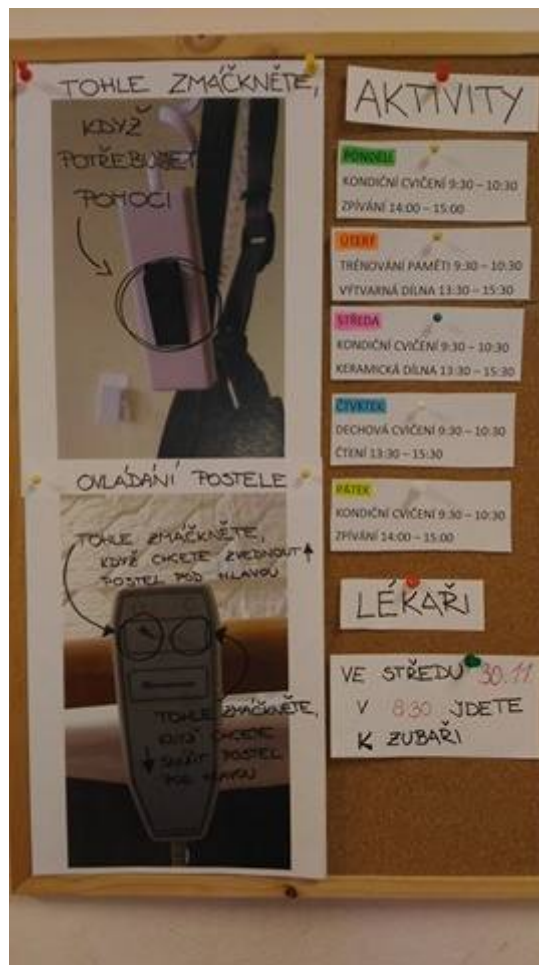 TOHLE ZMÁČKNĚTE,
KDYŽ
POTŘEBUJET
POMOCI
OVLÁDÁNÍ POSTELE
TOHLE ZMÁČKNĚTE,
KDYŽ CHCETE ZVEDNOUT
POSTEL POD HLAVOU
TOHLE ZMÁČKNĚTE,
KDYŽ CHCETE
SNÍŽIT POSTEL
POD HLAVOU
AKTIVITY
PONDĚLÍ
KONDIČNÍ CVIČENÍ 9:30 – 10:30
ZPÍVÁNÍ 14:00 – 15:00
ÚTERÝ
TRÉNOVÁNÍ PAMĚTI 9:30 – 10:30
VÝTVARNÁ DÍLNA 13:30 – 15:30
STŘEDA
KONDIČNÍ CVIČENÍ 9:30 – 10:30
KERAMICKÁ DÍLNA 13:30 – 15:30
ČTVRTEK
DECHOVÁ CVIČENÍ 9:30 – 10:30
ČTENÍ 13:30 – 15:30
PÁTEK
KONDIČNÍ CVIČENÍ 9:30 – 10:30
ZPÍVÁNÍ 14:00 – 15:00
LÉKAŘI
VE STŘEDU 30.11
V 8:30 JDETE
K ZUBAŘI